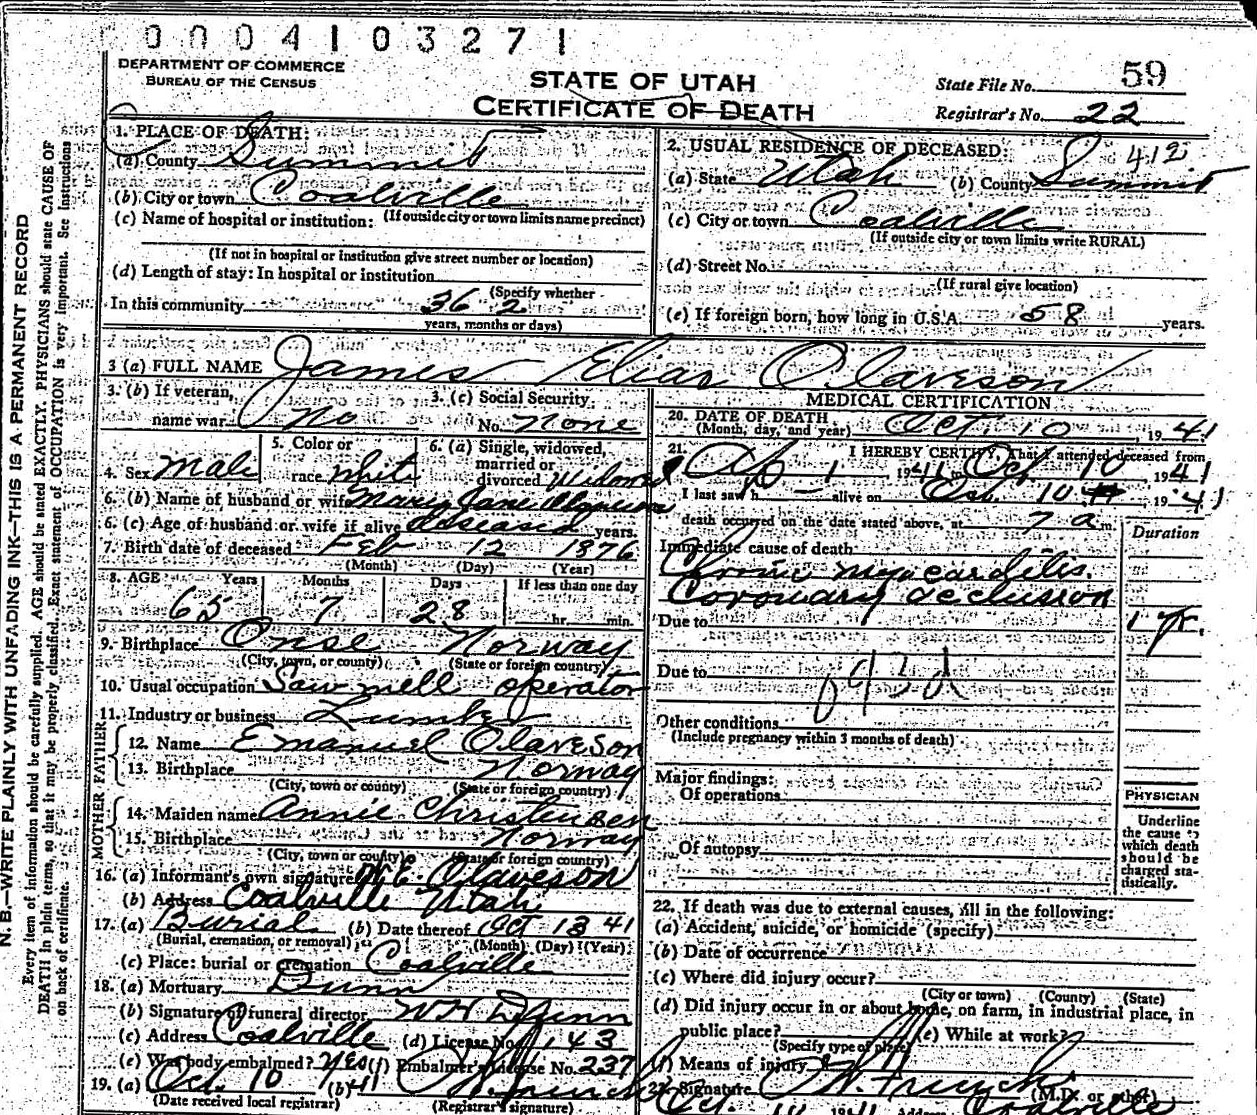 0004103271
DEPARTMENT OF COMMERCE
BUREAU OF THE CENSUS
STATE OF UTAH
CERTIFICATE OF DEATH
State File No. 59
Registrar's No. 22
N. B.—WRITE PLAINLY WITH UNFADING INK—THIS IS A PERMANENT RECORD
Every item of information should be carefully supplied. AGE should be stated EXACTLY. PHYSICIANS should state CAUSE OF
DEATH in plain terms, so that it may be properly classified. Exact statement of OCCUPATION is very important. See instructions
on back of certificate.
1. PLACE OF DEATH:
(a) County Summit
(b) City or town Coalville
(c) Name of hospital or institution: (If outside city or town limits name precinct)
(If not in hospital or institution give street number or location)
(d) Length of stay: In hospital or institution
(Specify whether
In this community 36 2
years, months or days)
2. USUAL RESIDENCE OF DECEASED: 412
(a) State Utah (b) County Summit
(c) City or town Coalville
(If outside city or town limits write RURAL)
(d) Street No.
(If rural give location)
(e) If foreign born, how long in U.S.A. 58 years.
3 (a) FULL NAME James Elias Olaveson
3. (b) If veteran, 3. (c) Social Security
name war No No. None
4. Sex Male 5. Color or race White 6. (a) Single, widowed, married or divorced Widowed
6. (b) Name of husband or wife Mary Jane Olaveson
6. (c) Age of husband or wife if alive deseased years.
7. Birth date of deceased Feb 12 1876
(Month) (Day) (Year)
8. AGE Years Months Days If less than one day
65 7 28 hr. min.
9. Birthplace Onse Norway
(City, town, or county) (State or foreign country)
10. Usual occupation Saw mell operator
11. Industry or business Lumber
FATHER
12. Name Emanuel Olaveson
13. Birthplace Norway
(City, town or county) (State or foreign country)
MOTHER
14. Maiden name Annie Christensen
15. Birthplace Norway
(City, town or county) (State or foreign country)
16. (a) Informant's own signature Olaveson
(b) Address Coalville Utah
17. (a) Burial (b) Date thereof Oct 13 41
(Burial, cremation, or removal) (Month) (Day) (Year)
(c) Place: burial or cremation Coalville
18. (a) Mortuary Dunn
(b) Signature of funeral director W H Dunn
(c) Address Coalville (d) License No. 143
(e) Was body embalmed? Yes (f) Embalmer's License No. 237
19. (a) Oct. 10 41 (b)
(Date received local registrar) (Registrar's signature)
MEDICAL CERTIFICATION
20. DATE OF DEATH
(Month, day, and year) Oct. 10, 1941
21. I HEREBY CERTIFY, That I attended deceased from
1, 1941 to Oct 10, 1941
I last saw h alive on Oct. 10, 1941
death occurred on the date stated above, at 7 a m.
Duration
Immediate cause of death
Chronic myocarditis.
Coronary occlusion
Due to 1 yr.
Due to
Other conditions
(Include pregnancy within 3 months of death)
Major findings:
Of operations
Of autopsy
PHYSICIAN
Underline
the cause to
which death
should be
charged sta-
tistically.
22. If death was due to external causes, fill in the following:
(a) Accident, suicide, or homicide (specify)
(b) Date of occurrence
(c) Where did injury occur?
(City or town) (County) (State)
(d) Did injury occur in or about home, on farm, in industrial place, in
public place? (e) While at work?
(Specify type of place)
(f) Means of injury
23. Signature (M.D. or other)
Address Coalville